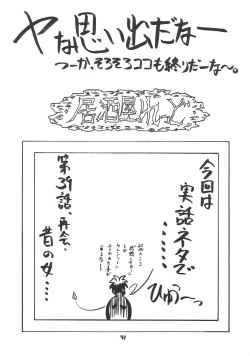 ヤな思い出だなー
つーか、そろそろココも終りだーな〜。
居酒屋れっど
今回は
実話ネタで
……
ひゅか〜っ
第39話、再会、
昔の女……